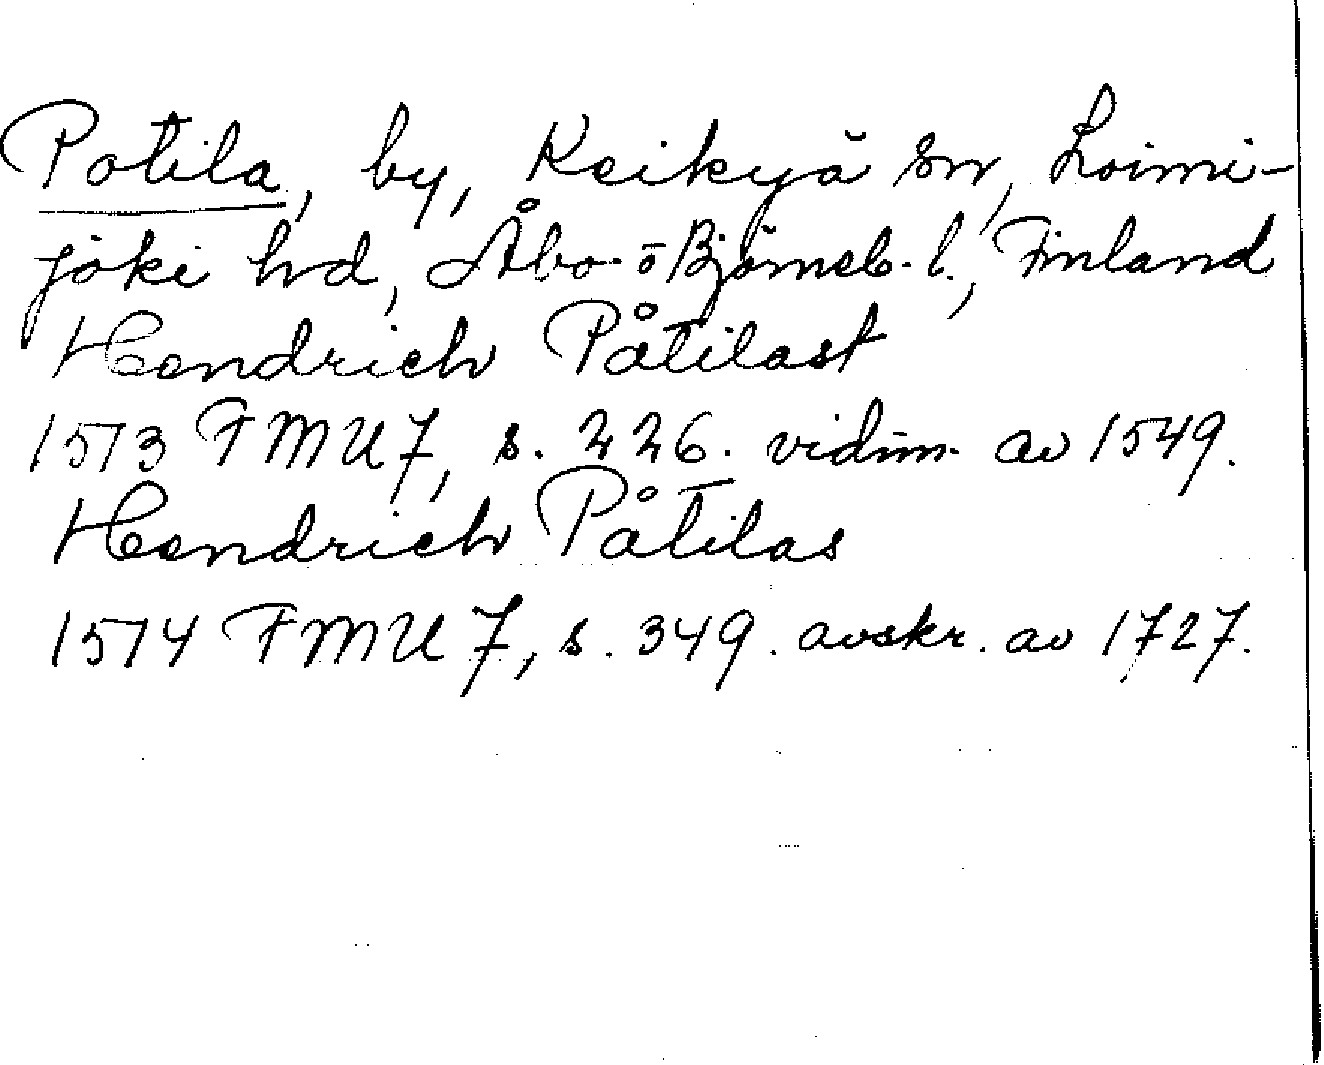 Potila, by, Keikyä sn, Loimi-
joki hd, Åbo- o Björneb. l., Finland
Hendrich Påtilast
1513 FMU 7, s. 226. vidim. av 1549.
Hendrich Påtilas
1514 FMU 7, s. 349. avskr. av 1727.